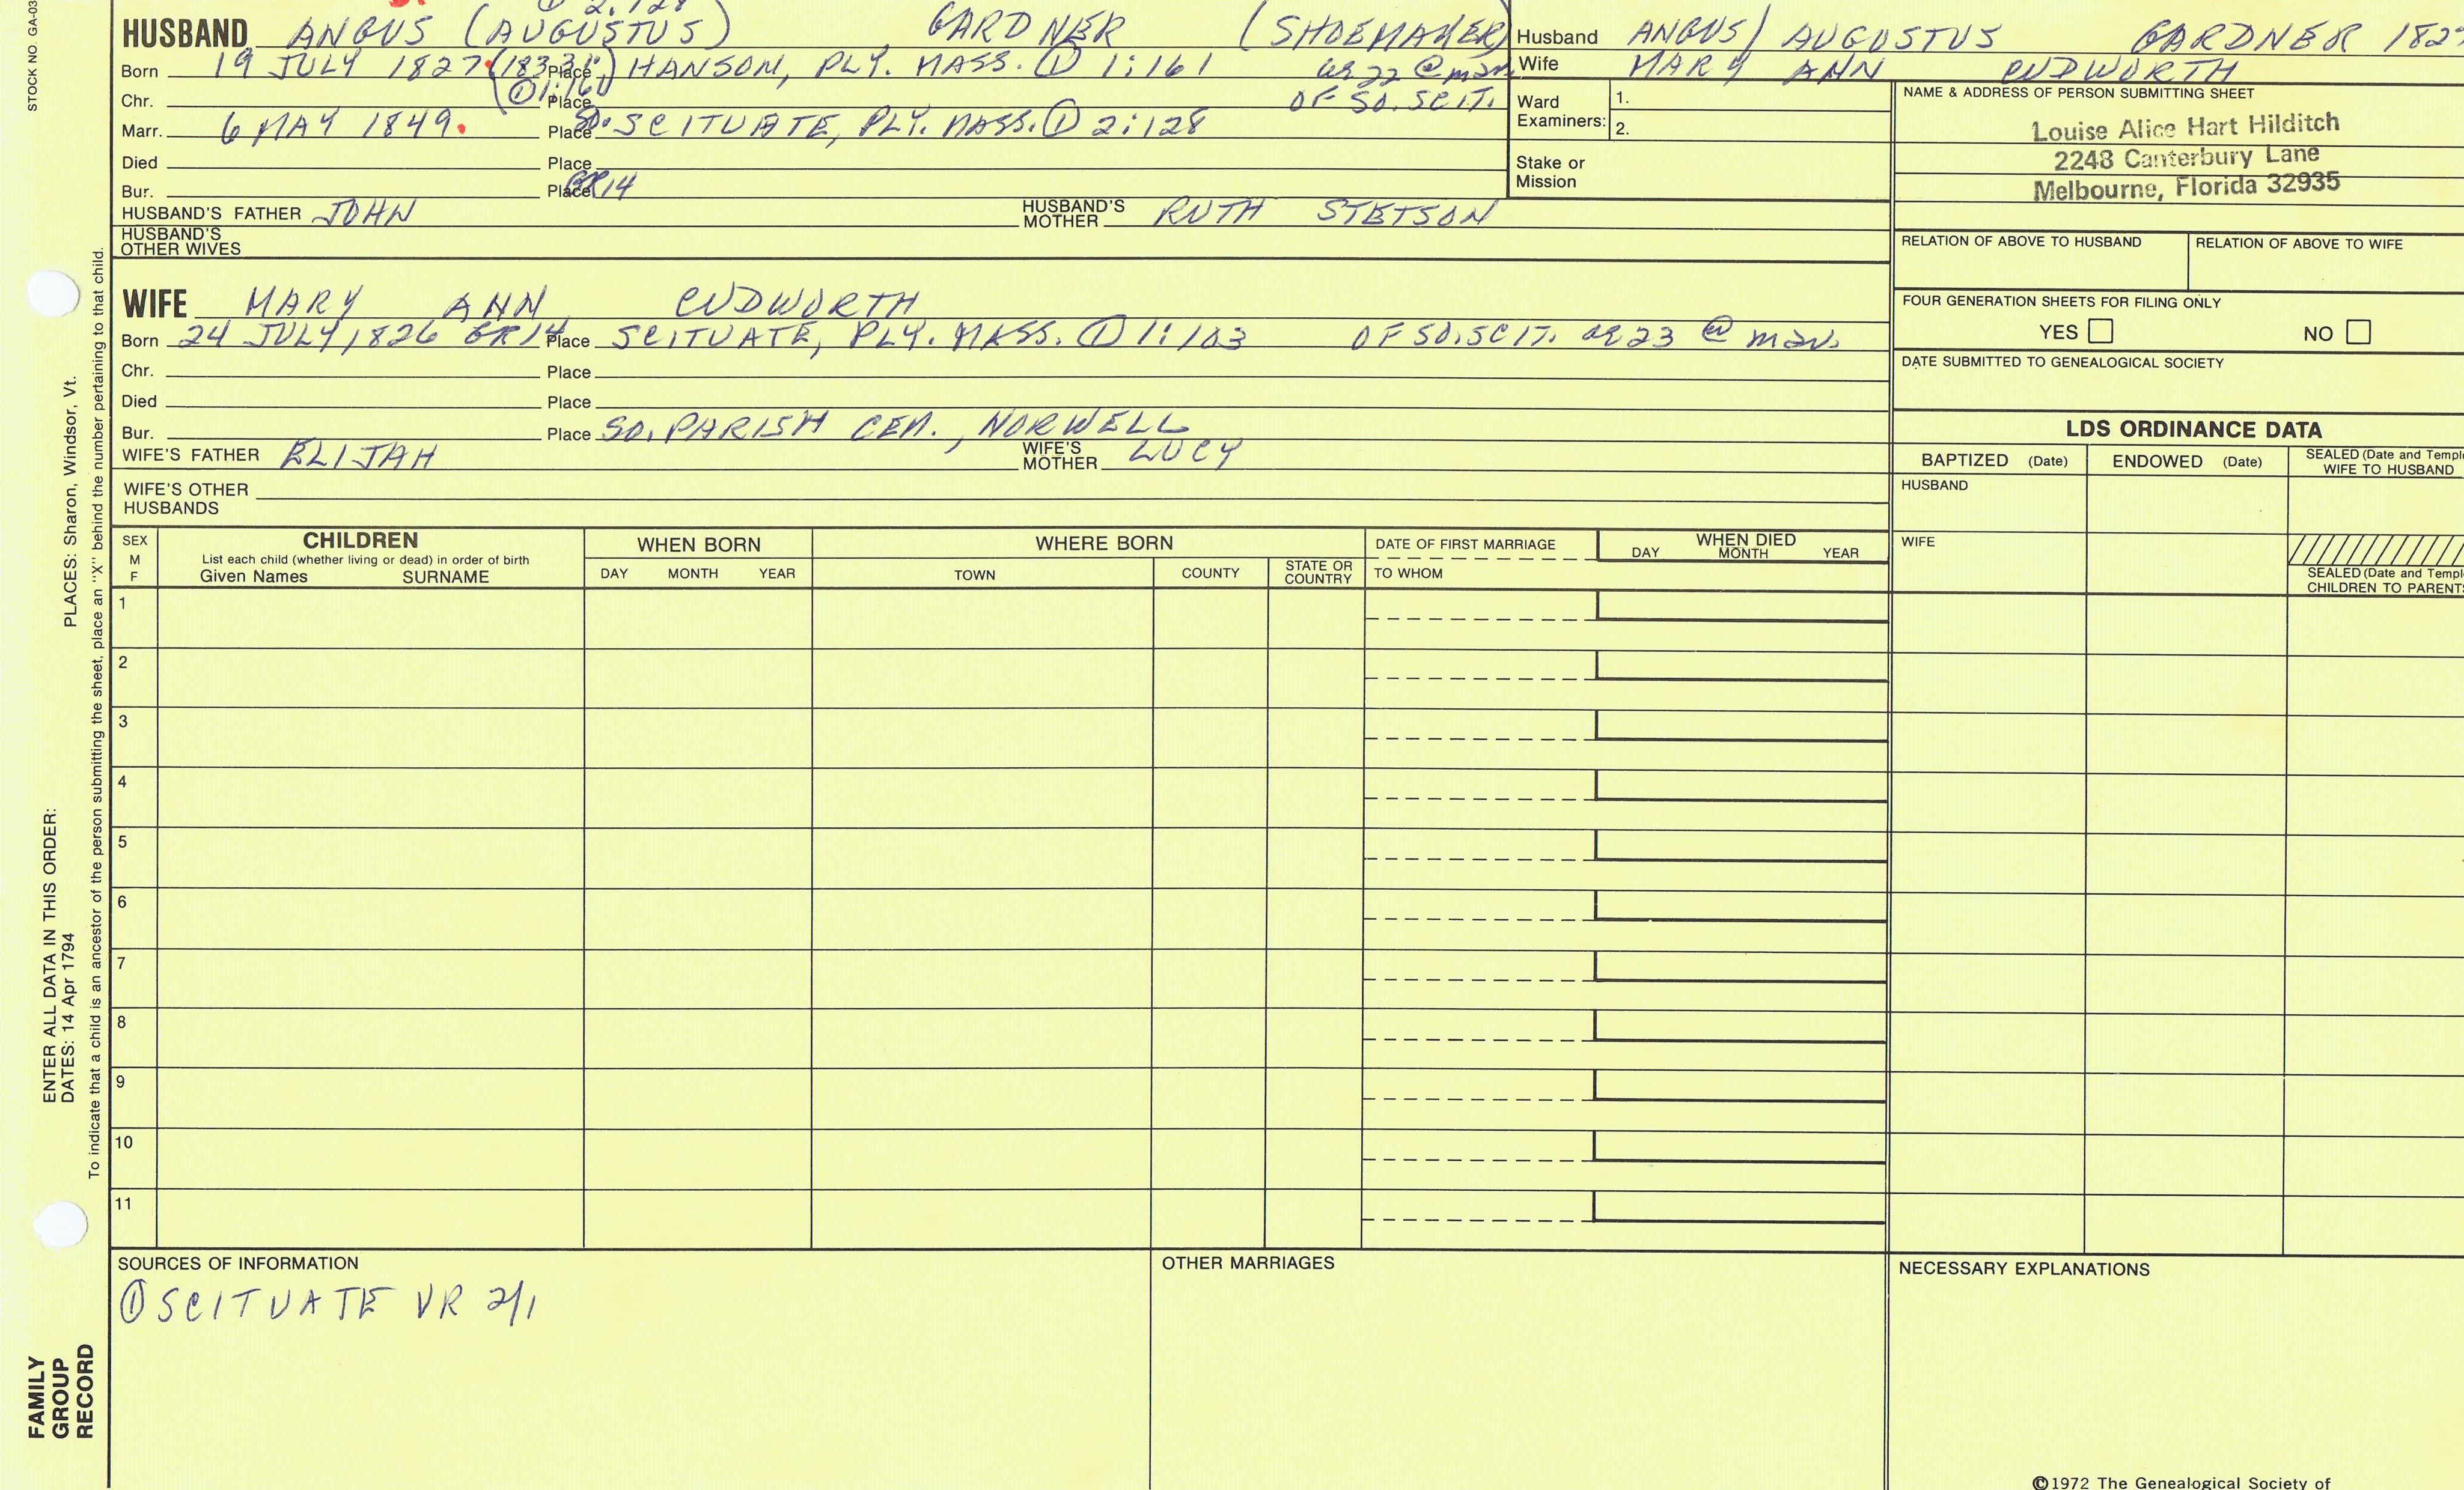 STOCK NO. GA-03
① 2:128
HUSBAND ANGUS (AUGUSTUS) GARDNER (SHOEMAKER)
Born 19 JULY 1827 Place HANSON, PLY. MASS. ① 1:161 ae 22 @ mar.
Chr. Place OF SO. SCIT.
Marr. 6 MAY 1849. Place SO. SCITUATE, PLY. MASS. ① 2:128
Died Place
Bur. Place GR14
HUSBAND'S FATHER JOHN HUSBAND'S MOTHER RUTH STETSON
HUSBAND'S
OTHER WIVES
Husband ANGUS/ AUGUSTUS GARDNER 1827
Wife MARY ANN CUDWORTH
Ward
Examiners:
1.
2.
Stake or
Mission
NAME & ADDRESS OF PERSON SUBMITTING SHEET
Louise Alice Hart Hilditch
2248 Canterbury Lane
Melbourne, Florida 32935
RELATION OF ABOVE TO HUSBAND RELATION OF ABOVE TO WIFE
FOUR GENERATION SHEETS FOR FILING ONLY
YES NO
DATE SUBMITTED TO GENEALOGICAL SOCIETY
WIFE MARY ANN CUDWORTH
Born 24 JULY, 1826 GR14 Place SCITUATE, PLY. MASS. ① 1:103 OF SO. SCIT. ae 23 @ mar.
Chr. Place
Died Place
Bur. Place SO. PARISH CEM., NORWELL
WIFE'S FATHER ELIJAH WIFE'S MOTHER LUCY
WIFE'S OTHER
HUSBANDS
LDS ORDINANCE DATA
BAPTIZED (Date) ENDOWED (Date) SEALED (Date and Temple
WIFE TO HUSBAND
HUSBAND
WIFE
SEALED (Date and Temple
CHILDREN TO PARENTS
SEX
M
F
CHILDREN
List each child (whether living or dead) in order of birth
Given Names SURNAME
WHEN BORN
DAY MONTH YEAR
WHERE BORN
TOWN COUNTY STATE OR COUNTRY
DATE OF FIRST MARRIAGE
TO WHOM
WHEN DIED
DAY MONTH YEAR
1
2
3
4
5
6
7
8
9
10
11
SOURCES OF INFORMATION
① SCITUATE VR 2/1
OTHER MARRIAGES
NECESSARY EXPLANATIONS
©1972 The Genealogical Society of
PLACES: Sharon, Windsor, Vt.
To indicate that a child is an ancestor of the person submitting the sheet, place an "X" behind the number pertaining to that child.
ENTER ALL DATA IN THIS ORDER:
DATES: 14 Apr 1794
FAMILY
GROUP
RECORD